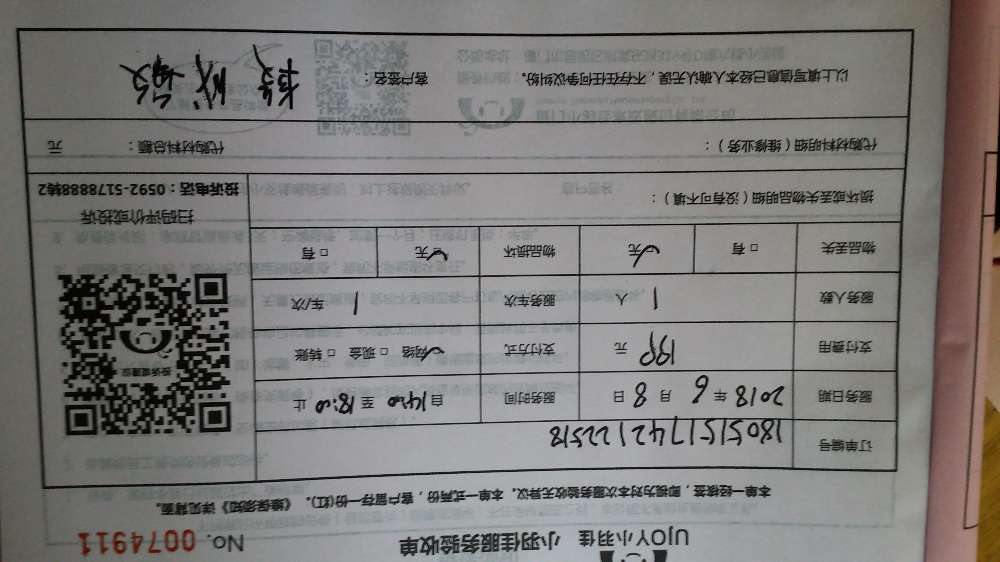 UJOY小羽佳 小羽佳服务验收单 No. 0074911
本单一经核签，即视为对本次服务验收无异议。本单一式两份，客户留存一份(红)。《维保须知》详见背面。
订单编号 180515174212251８
服务日期 2018 年 6 月 8 日 服务时间 自 14:00 至 18:00 止
支付费用 199 元 支付方式 ☑网络 □现金 □转账
服务人数 1 人 服务车次 1 车/次
物品丢失 □有 ☑无 物品损坏 ☑无 □有
投诉或建议
扫码评价或投诉
投诉电话：0592-5178888转2
损坏或丢失物品明细（没有可不填）：
代购材料明细（维修业务）： 代购材料总额： 元
以上填写信息已经本人确认无误，不存在任何争议纠纷。 客户签名：